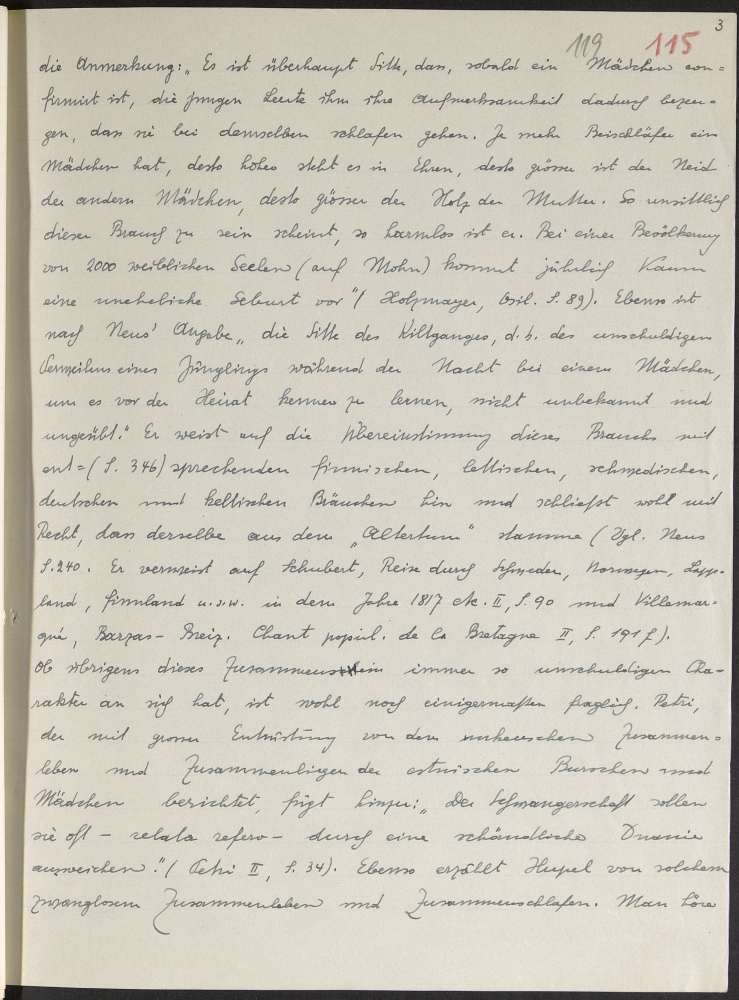 3
119 115
die Anmerkung: „Es ist überhaupt Sitte, dass, sobald ein Mädchen con=
firmirt ist, die jungen Leute ihm ihre Aufmerksamkeit dadurch bezeu-
gen, dass sie bei demselben schlafen gehen. Je mehr Beischläfer ein
Mädchen hat, desto höher steht es in Ehren, desto grösser ist der Neid
der andern Mädchen, desto grösser der Stolz der Mutter. So unsittlich
dieser Brauch zu sein scheint, so harmlos ist er. Bei einer Bevölkerung
von 2000 weiblichen Seelen (auf Mohn) kommt jährlich kaum
eine uneheliche Geburt vor" (Holzmayer, Osil. S. 89). Ebenso ist
nach Neus' Angabe „die Sitte des Kiltganges, d. h. des unschuldigen
Verweilens eines Jünglings während der Nacht bei einem Mädchen,
um es vor der Heirat kennen zu lernen, nicht unbekannt und
ungeübt." Er weist auf die Übereinstimmung dieses Brauchs mit
ent=(S. 346)sprechenden finnischen, lettischen, schwedischen,
deutschen und keltischen Bräuchen hin und schliefst wohl mit
Recht, dass derselbe aus dem „Altertum" stamme (Vgl. Neus
S. 240. Er verweist auf Schubert, Reise durch Schweden, Norwegen, Lapp-
land, Finnland u.s.w. in dem Jahre 1817 etc. II, S. 90 und Villemar-
qué, Barzas-Breiz. Chant popul. de la Bretagne II, S. 191 f).
Ob übrigens dieses Zusammensein immer so unschuldigen Cha-
rakter an sich hat, ist wohl noch einigermaſsen fraglich. Petri,
der mit grosser Entrüstung von dem unkeuschen Zusammen=
leben und Zusammenliegen der estnischen Burschen und
Mädchen berichtet, fügt hinzu: „Der Schwangerschaft sollen
sie oft – relata refero – durch eine schändliche Onanie
ausweichen." (Petri II, S. 34). Ebenso erzählt Hupel von solchem
zwanglosem Zusammenleben und Zusammenschlafen. Man höre